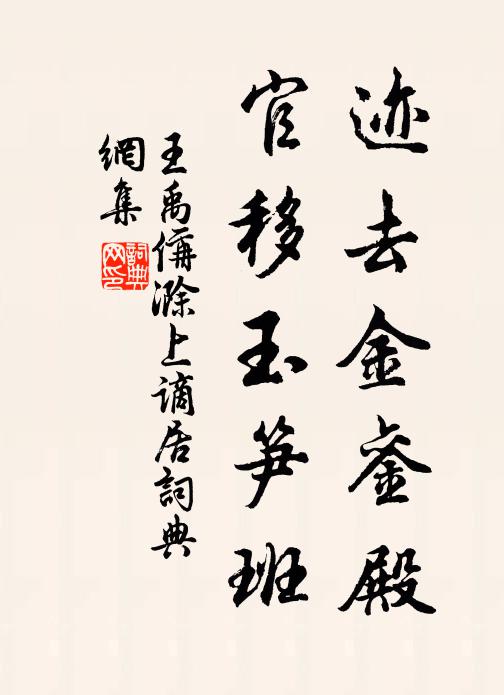 迹去金銮殿
官移玉笋班
王禹偁滁上谪居詞典
網集
詞典網印